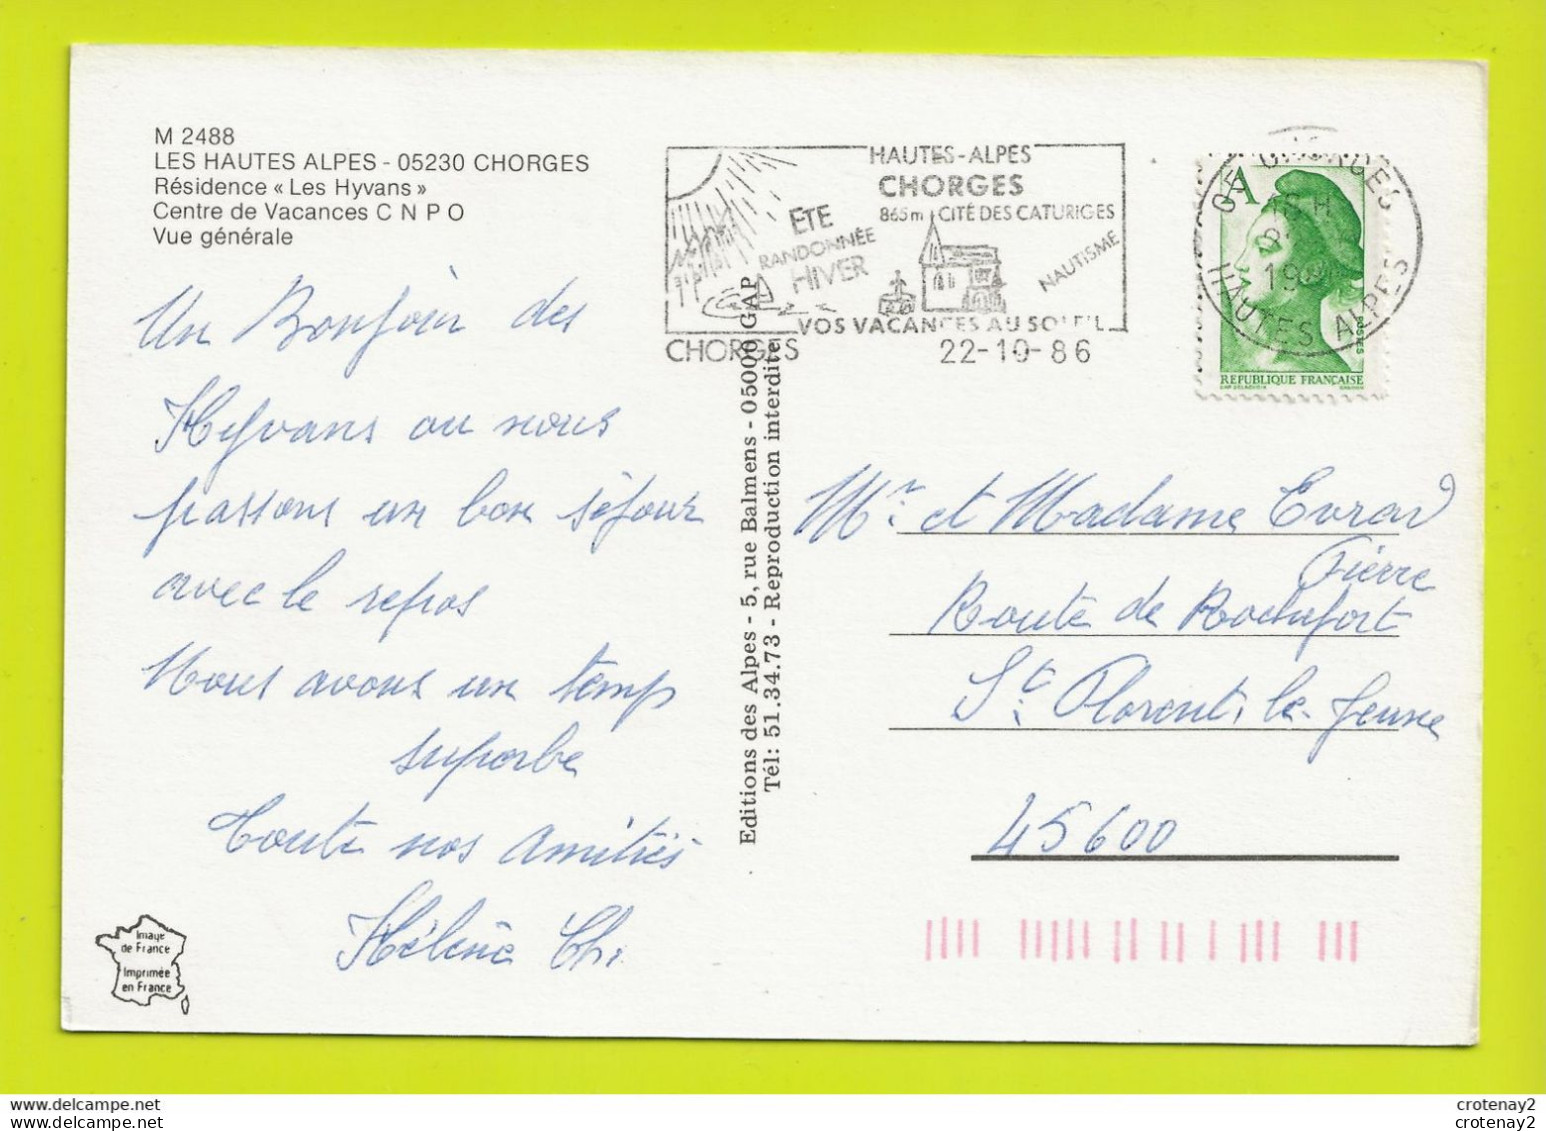 M 2488
LES HAUTES ALPES - 05230 CHORGES
Résidence « Les Hyvans »
Centre de Vacances C N P O
Vue générale
HAUTES-ALPES
CHORGES
865m CITÉ DES CATURIGES
ÉTÉ
RANDONNÉE
HIVER
NAUTISME
VOS VACANCES AU SOLEIL
CHORGES
22-10-86
CHORGES
HAUTES ALPES
A
POSTES
REPUBLIQUE FRANÇAISE
Un Bonjour des
Hyvans ou nous
passons un bon séjour
avec le repos
Nous avons un temps
superbe
Toute nos amitiés
Hélène Ch.
Editions des Alpes - 5, rue Balmens - 05000 GAP
Tél: 51.34.73 - Reproduction interdite
Mr et Madame Evrard
Pierre
Route de Rochefort
St. Florent. le. Jeune
45600
Image
de France
Imprimée
en France
crotenay2
crotenay2
crotenay2
crotenay2